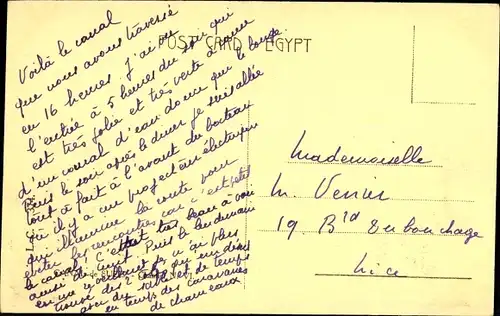 Voilà le canal
que nous avons traversé
en 16 heures j'ai vu
l'entrée à 5 heures du soir qui
est très jolie et très verte à cause
d'un canal d'eau douce qui le longe
Puis le soir après le diner je suis allée
tout à fait à l'avant du bateau
où il y a un projecteur électrique
qui illumine la route pour
éviter les rencontres car c'est petit
le canal c'était très beau à voir
ainsi de nuit. Puis le lendemain
on ne voit
des 2 côtés un désert
avec du sable et de temps
en temps des caravanes
de chameaux
POST CARD EGYPT
Mademoiselle
M. Venier
19 Bd Dubouchage
Nice